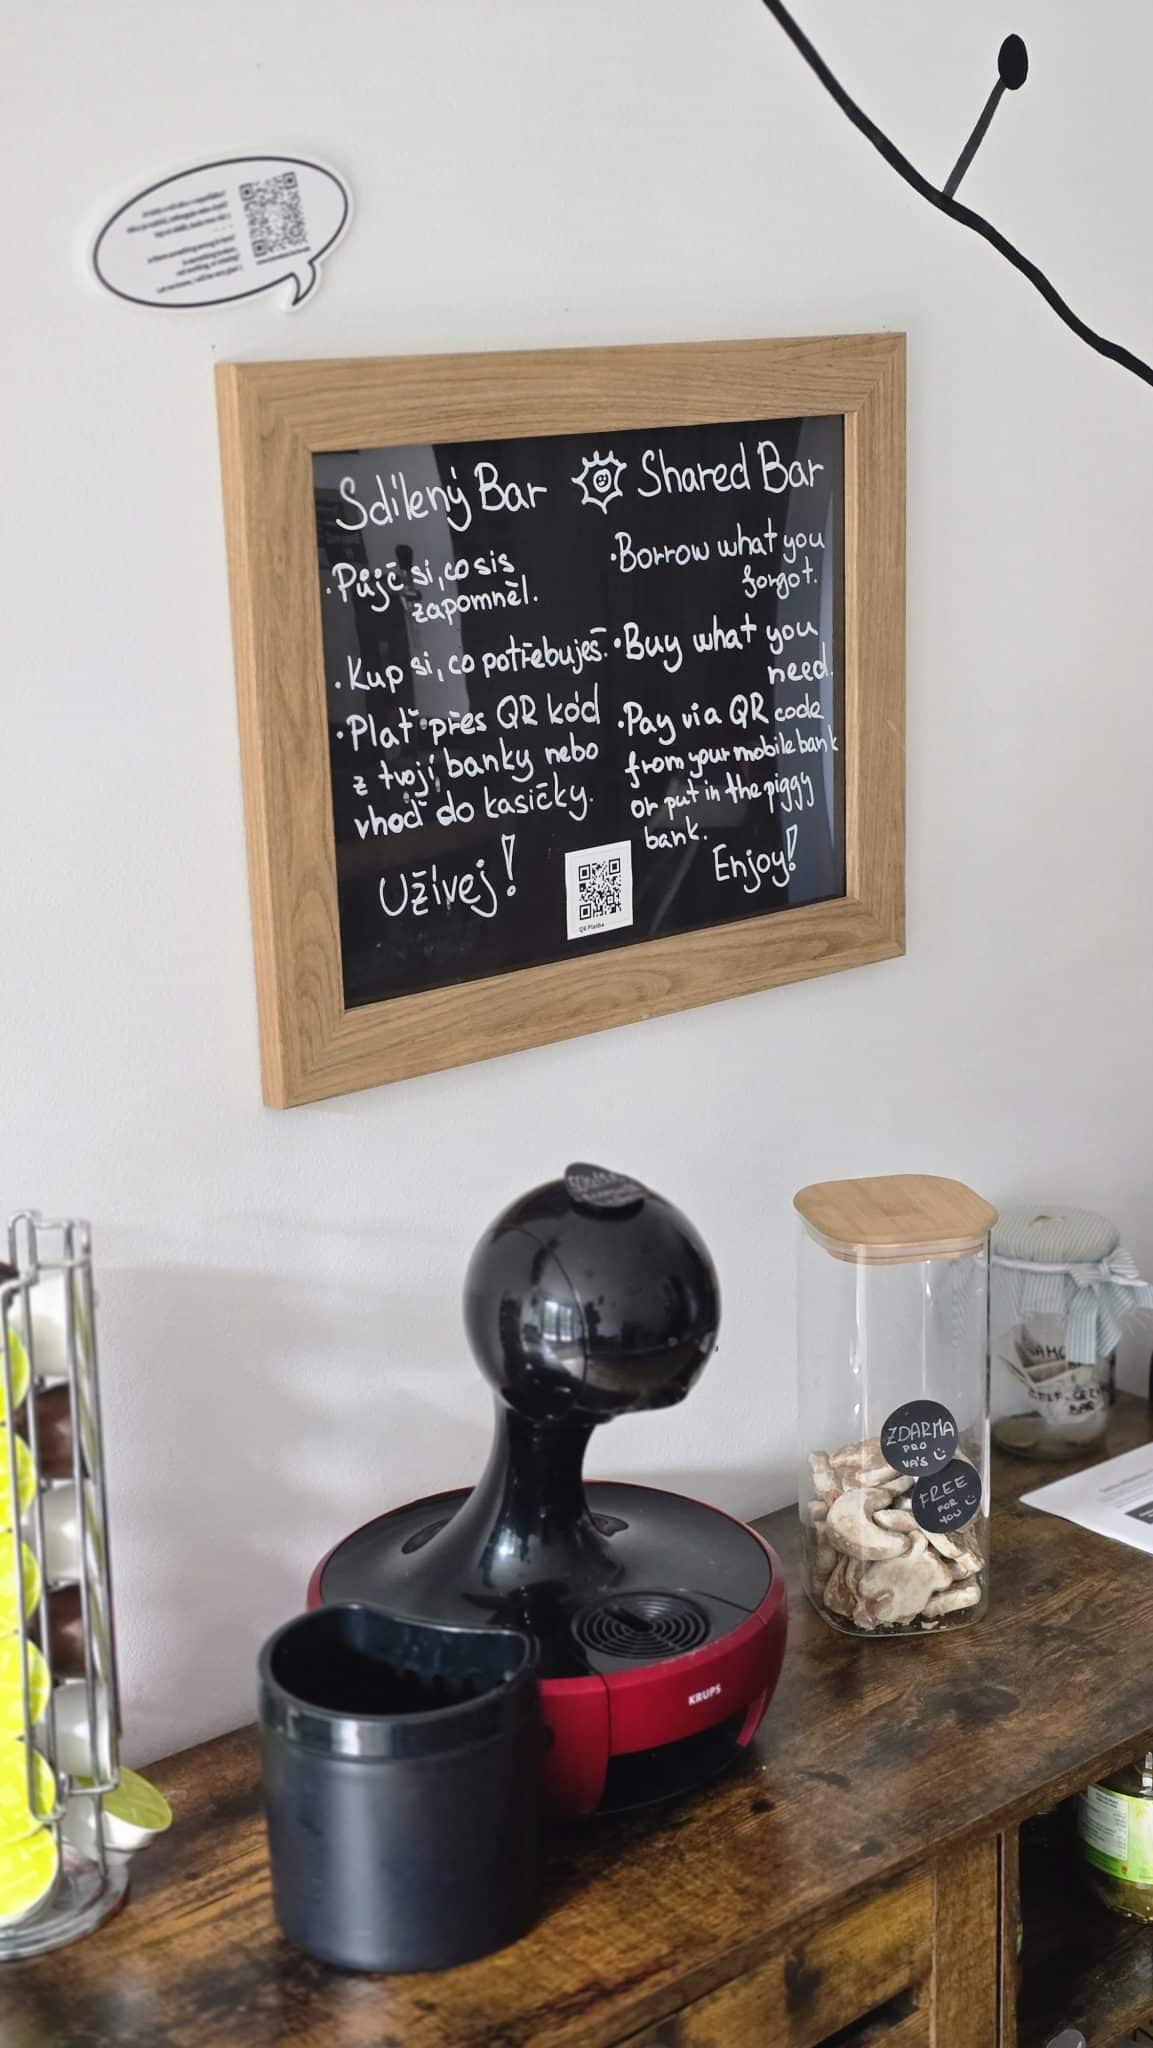 Sdílený Bar
• Půjč si, co sis
zapomněl.
• Kup si, co potřebuješ.
• Plať přes QR kód
z tvojí banky nebo
vhoď do kasičky.
Užívej!
Shared Bar
• Borrow what you
forgot.
• Buy what you
need.
• Pay via QR code
from your mobile bank
or put in the piggy
bank.
Enjoy!
QR Platba
KRUPS
ZDARMA
PRO
VÁS
FREE
FOR
YOU
BAR